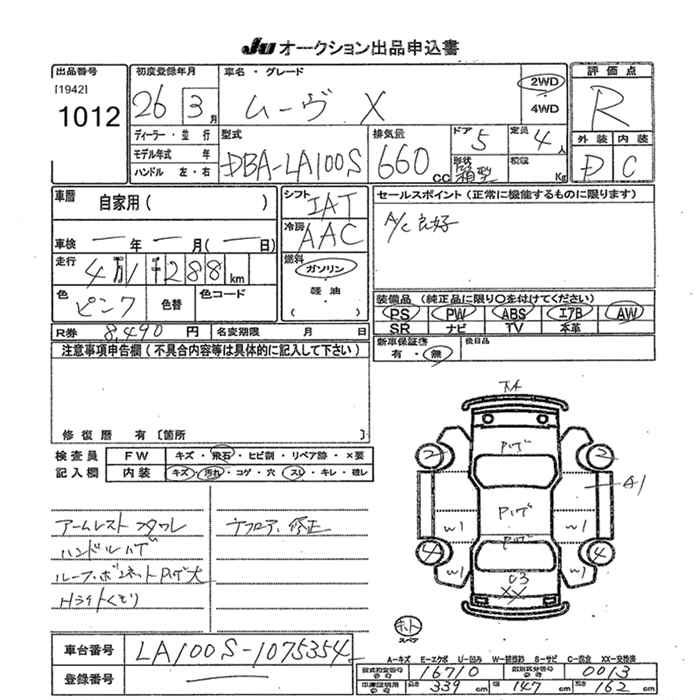 JU オークション出品申込書
出品番号
[1942]
1012
初度登録年月
26 3月
車名・グレード
ムーヴ X
2WD
4WD
評価点
R
外装 内装
D C
ディーラー・並行
モデル年式 年
ハンドル 左・右
型式
DBA-LA100S
排気量
660 CC
ドア 5
形状 箱型
定員 4人
積載 Kg
車歴 自家用( )
車検 ー年ー月(ー日)
走行 4万1千288km
色 ピンク
色替
色コード
シフト IAT
冷房 AAC
燃料
ガソリン
軽油
( )
セールスポイント(正常に機能するものに限ります)
A/C良好
装備品(純正品に限り〇を付けてください)
PS PW ABS エアB AW
SR ナビ TV 本革
R券 8,490円
名変期限 月 日
新車保証書
有・無
後日品
注意事項申告欄(不具合内容等は具体的に記入して下さい)
修復歴 有〔箇所 〕
検査員
記入欄
FW キズ・飛石・ヒビ割・リペア跡・×要
内装 キズ・汚れ・コゲ・穴・スレ・キレ・破レ
アームレストフタワレ
ハンドルハゲ
ルーフ・ボンネットPハゲ大
Hライトくもり
Pハゲ
2 2
A1
Pハゲ
W1 W1
Pハゲ
4 4
W1 W1
U3
XX
スペア
A-キズ E-エクボ U-凹み W-補修跡 S-サビ C-腐食 XX-交換済
車台番号 LA100S-1075354
登録番号
型式指定番号 16710 類別区分番号 0013
車庫証明用 長さ 339cm 幅 147cm 高さ 162cm